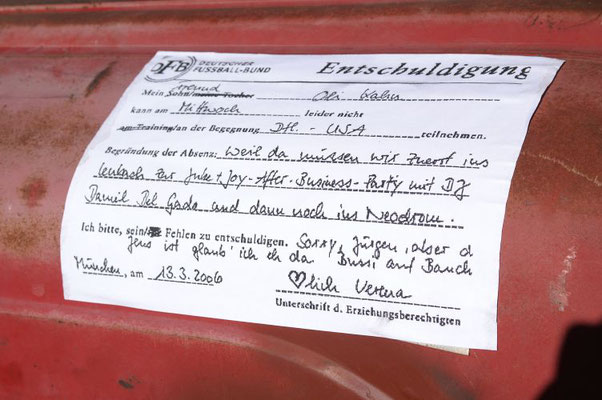 DFB DEUTSCHER
FUSSBALL-BUND
Entschuldigung
Freund
Mein Sohn/meine Tochter Oli Kahn
kann am Mittwoch leider nicht
am Training/an der Begegnung Dtl. - USA teilnehmen.
Begründung der Absenz: Weil da müssen wir zuerst ins
Lenbach zur Juke + Joy - After - Business - Party mit DJ
Daniel Del Gado und dann noch ins Neodrom.
Ich bitte, sein/ Fehlen zu entschuldigen. Sorry, Jürgen, aber d
Jens ist glaub' ich eh da. Bussi auf Bauch
München, am 13.3.2006 ♡lich Verena
Unterschrift d. Erziehungsberechtigten